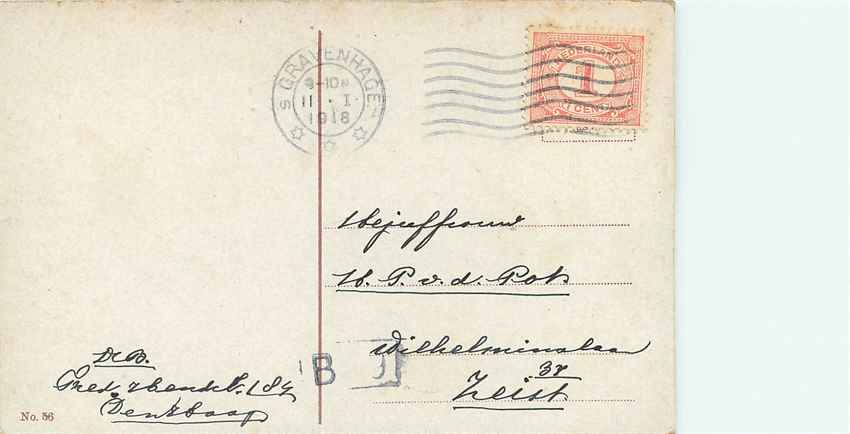 'S GRAVENHAGE
9-10N
11 · I
1918
NEDERLAND
1
CENT
Mejuffrouw
M. P. v. d. Pol
Wilhelminalaan
37
Zeist
Dr. B.
Fred. Hendr. l. 84
Den Haag
B
No. 56